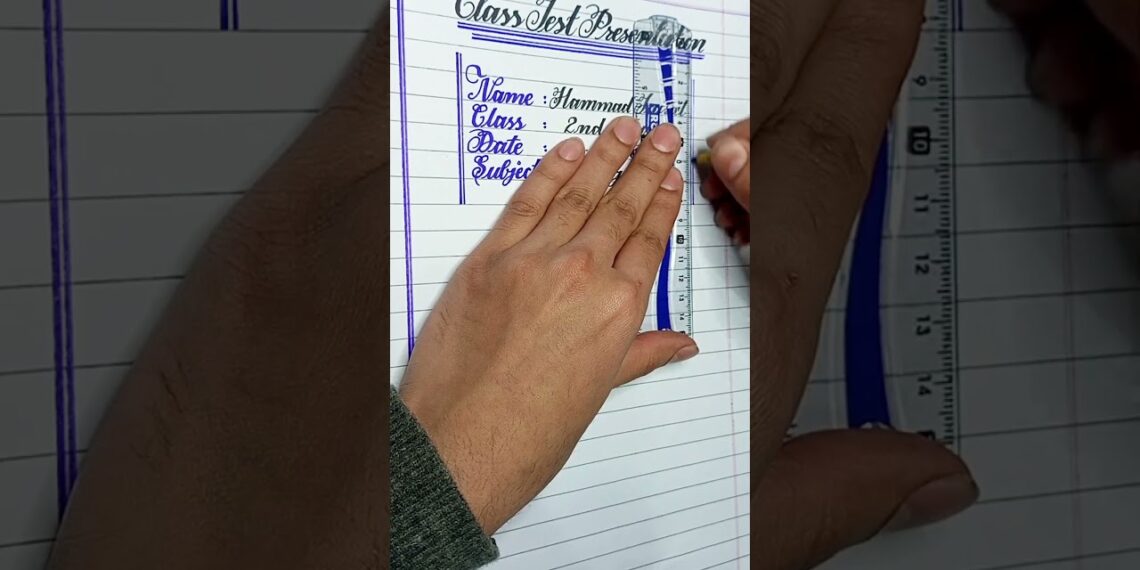 Class Test Presentation
Name : Hammad
Class : 2nd
Date :
Subject
10 11 12 13 14
9 10 11 12 13 14